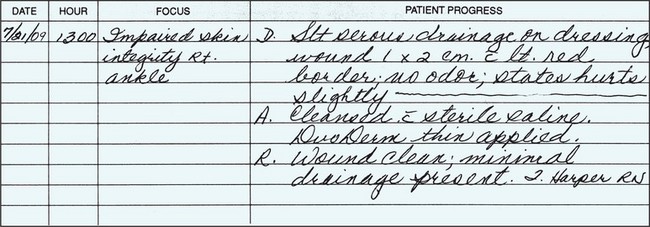 DATE HOUR FOCUS PATIENT PROGRESS
7/31/09 1300 Impaired skin D. Slt serous drainage on dressing,
integrity Rt. wound 1 x 2 cm. c̄ lt. red
ankle border; no odor; states hurts
slightly
A. Cleansed c̄ sterile saline.
DuoDerm thin applied.
R. Wound clean; minimal
drainage present. J. Harper RN